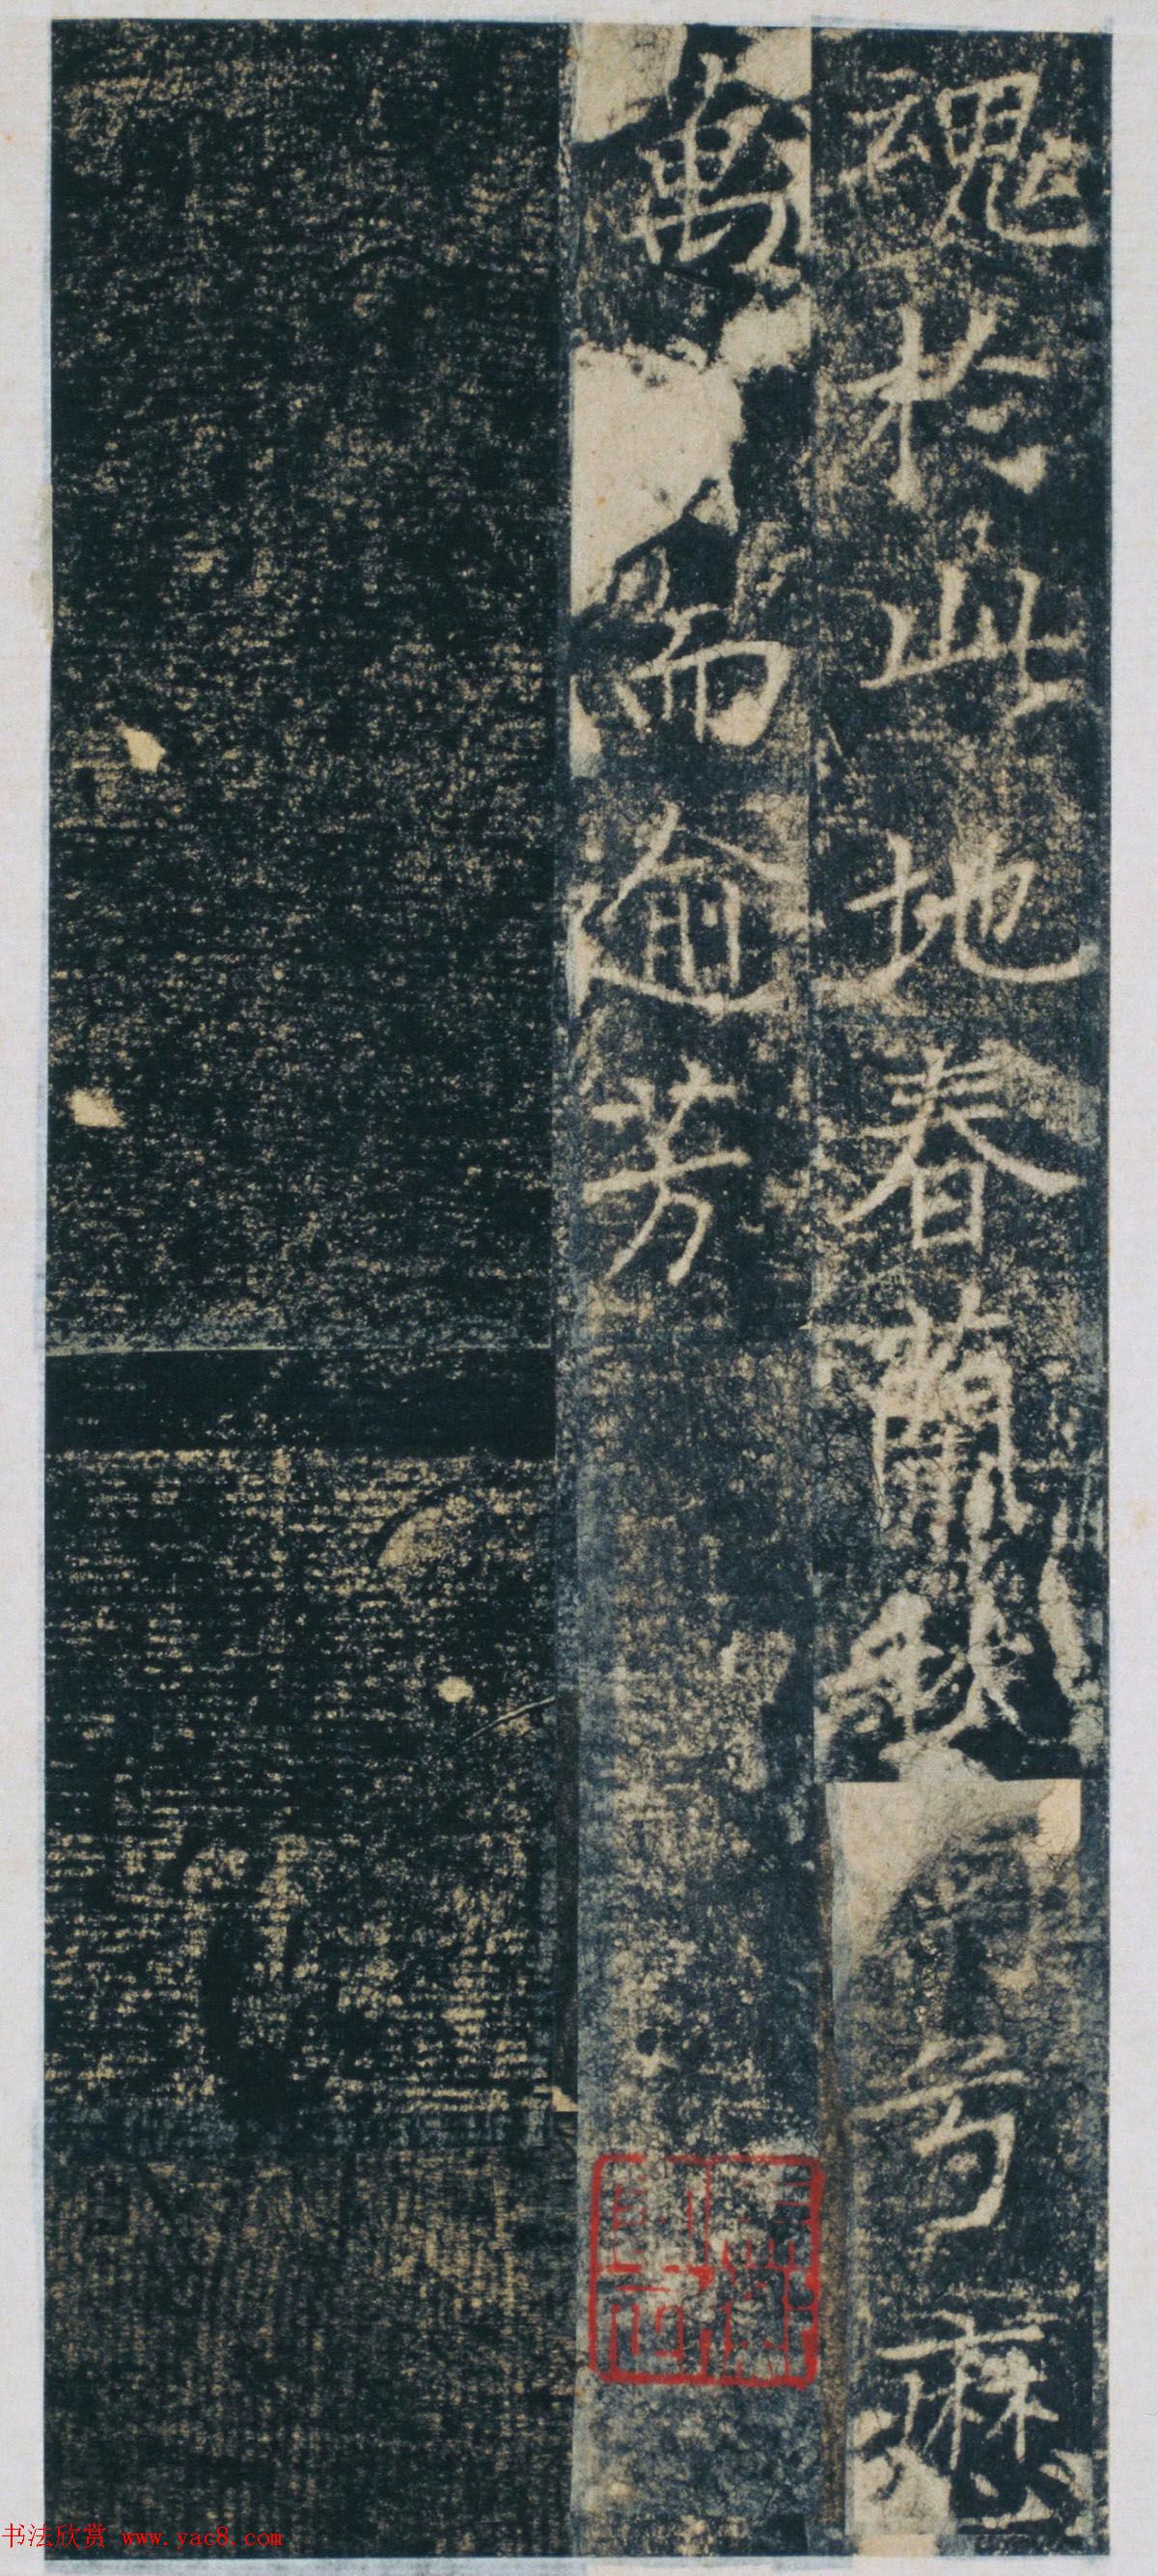 魂於此地春蘭秋
兮歷
萬
而逾芳
书法欣赏 www.yac8.com